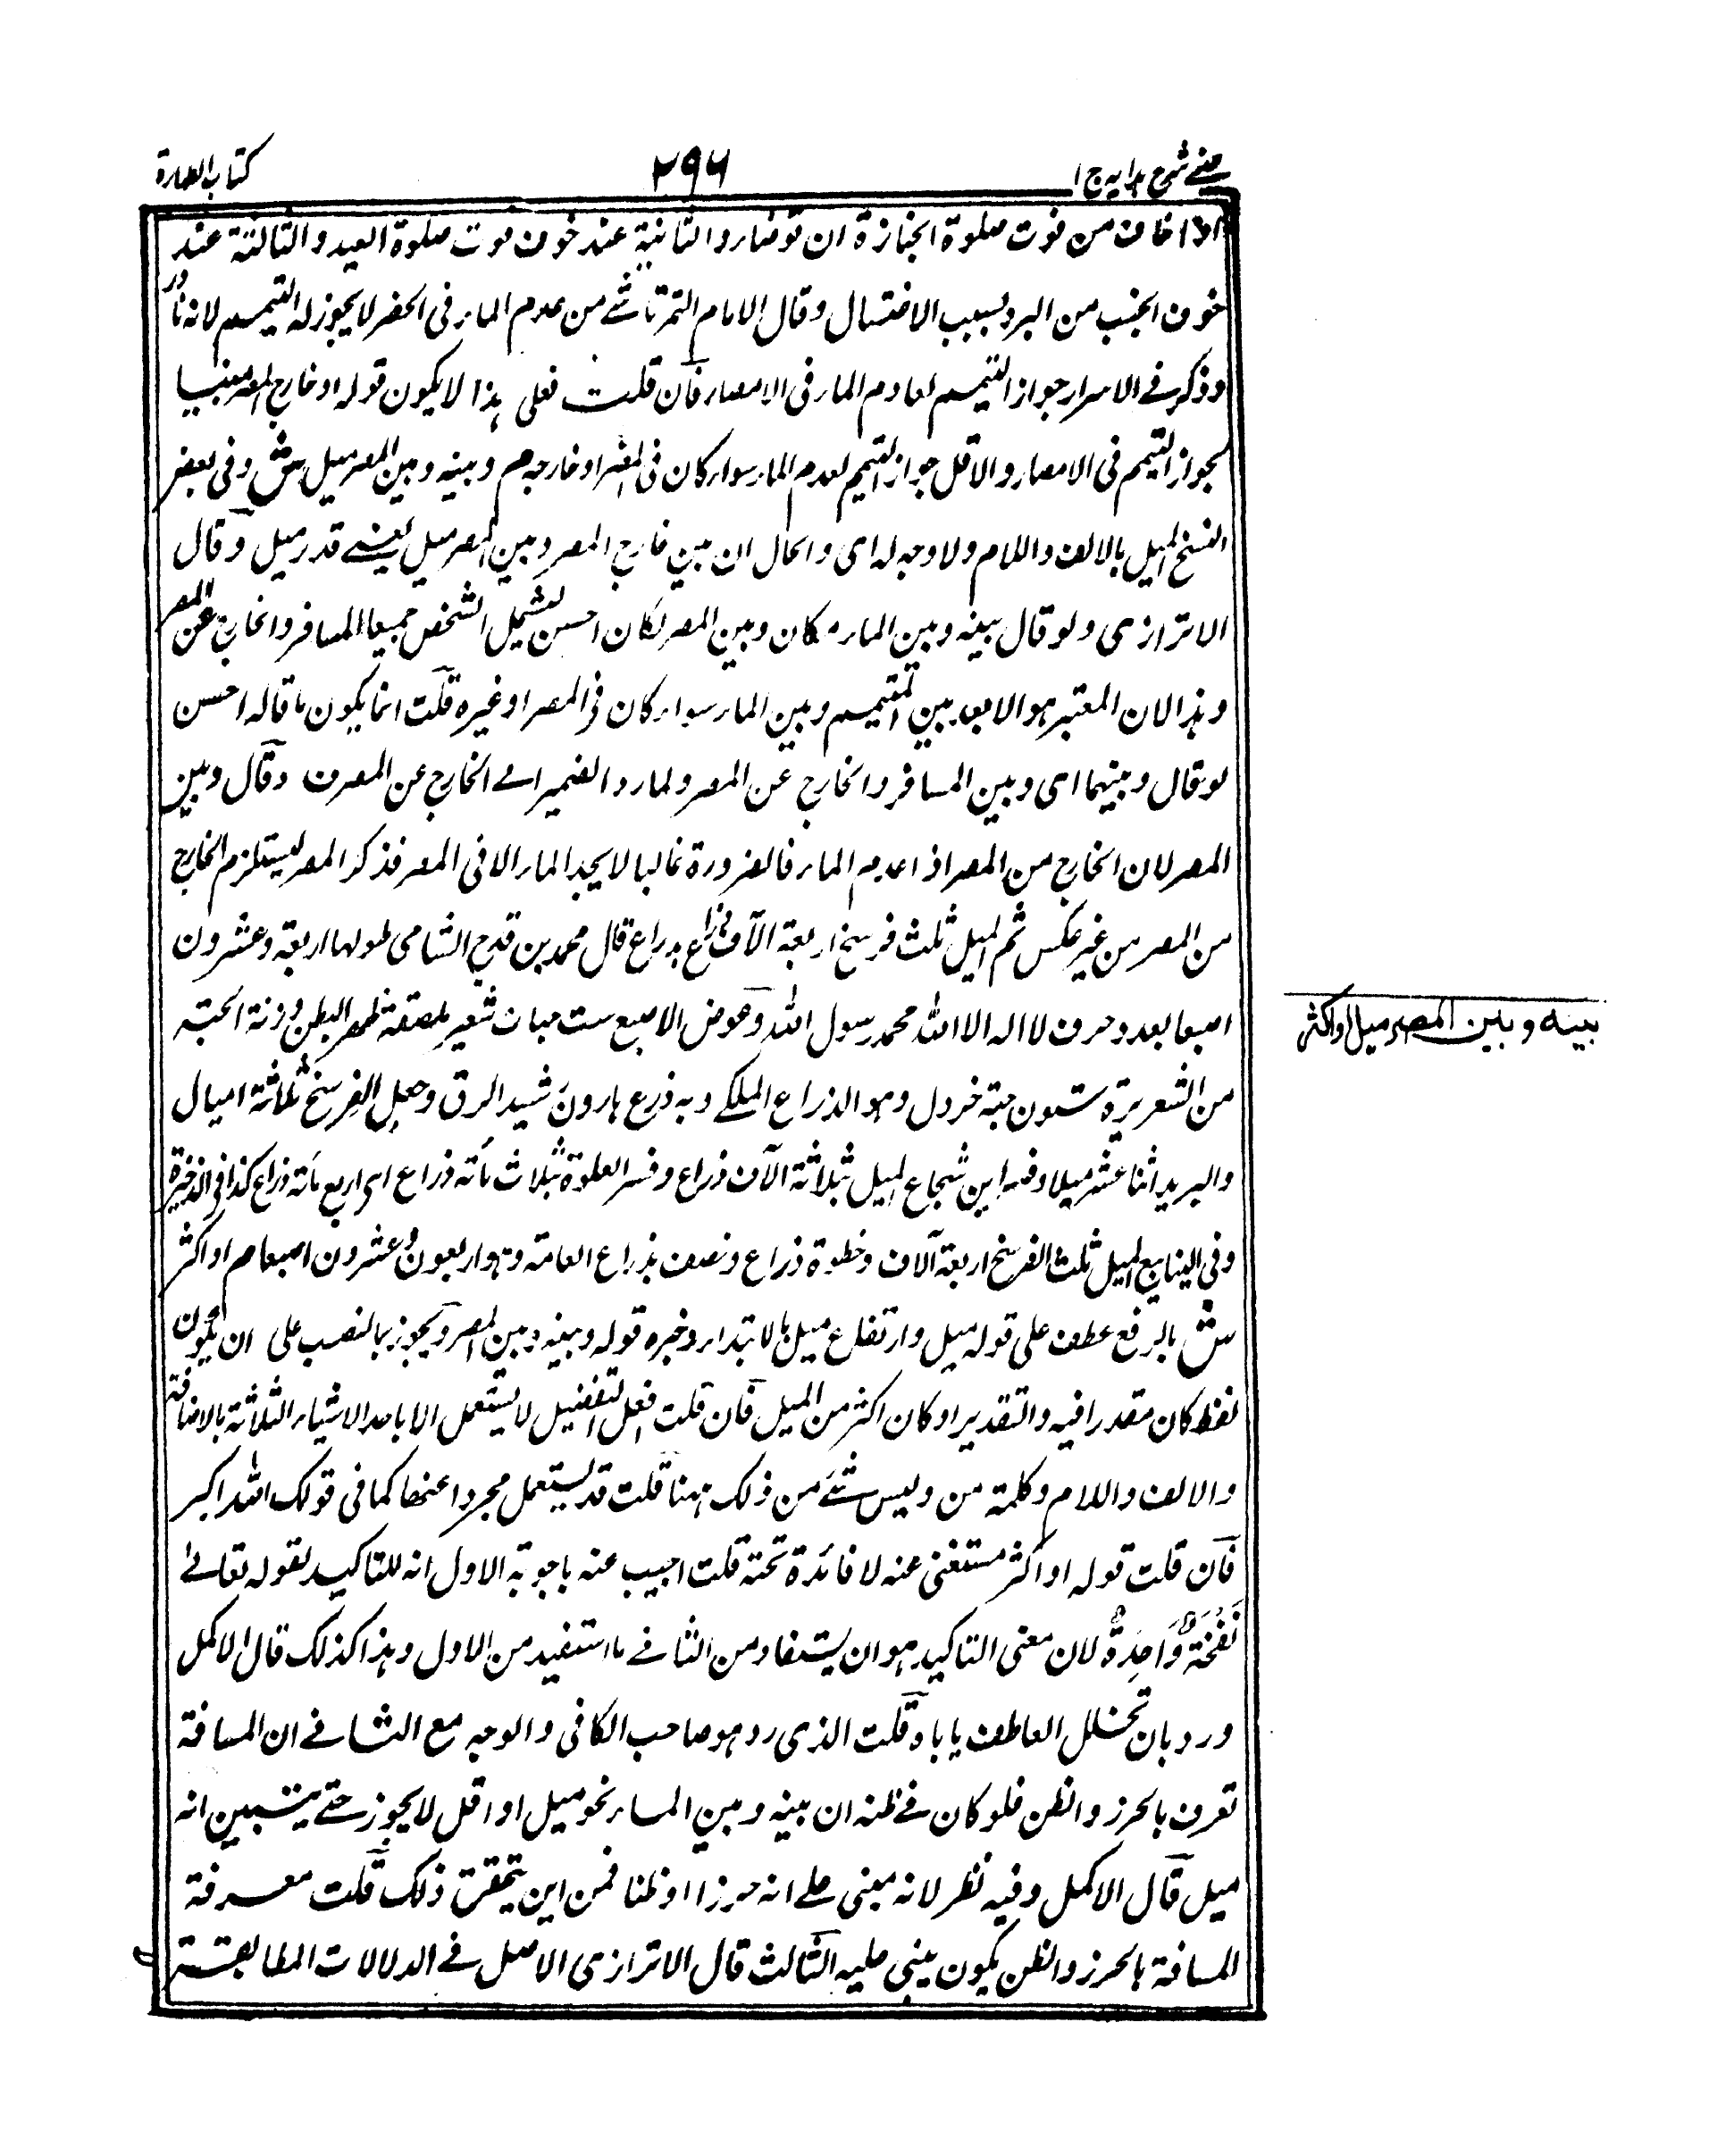 عيني شرح هدايه ج ١
٢٩٦
كتاب الطهارة
اذا خاف من فوت صلوة الجنازة ان توضأ والثانية عند خوف فوت صلوة العيد والثالثة عند
خوف الجنب من البرد بسبب الاغتسال وقال الامام التمرتاشي من عدم الماء في الحضر لا يجوز له التيمم لانه نادر
وذكر في الاسرار جواز التيمم لعادم الماء في الامصار فان قلت فعلى هذا لا يكون قوله او خارج المصر منبيا
لجواز التيمم في الامصار والاقل جواز التيمم لعدم الماء سواء كان في المصر او خارجه م وبينه وبين المصر ميل ش وفي بعض
النسخ الميل بالالف واللام ولا وجه له اي والحال ان بين خارج المصر وبين المصر ميل يعني قدر ميل وقال
الاترازي ولو قال بينه وبين الماء مكان وبين المصر لكان احسن ليشمل الشخص جميعا المسافر والخارج عن المصر
وهذا لان المعتبر هو الابعاد بين المتيمم وبين الماء سواء كان في المصر او غيره قلت انما يكون ما قاله احسن
لو قال وبينهما اي وبين المسافر والخارج عن المصر ولما رد الضمير الى الخارج عن المصرف وقال وبين
المصر لان الخارج من المصر اذا عدم الماء فالضرورة غالبا لا يجد الماء الا في المصر فذكر المصر ليستلزم الخارج
من المصر من غير عكس ثم الميل ثلث فرسخ اربعة الآف ذراع بذراع قال محمد بن فرج الشامي طولها اربعة وعشرون
اصبعا بعدد حرف لا اله الا الله محمد رسول الله وعوض الاصبع ست حبات شعير ملصقة ظهر البطن وزنة الحبة
من الشعريرة ستون حبة خردل وهو الذراع الملكي وبه ذرع هارون رشيد الرق وجعل الفرسخ ثلاثة اميال
والبريد اثنا عشر ميلا وفسر ابن شجاع الميل بثلاثة الآف ذراع وفسر الغلوة بثلاث مأته ذراع الى اربع مأته ذراع كذا في الذخيرة
وفي الينابيع الميل ثلث الفرسخ اربعة آلاف وخطوة ذراع ونصف بذراع العامة وهو اربعون وعشرون اصبعا م او اكثر
ش بالرفع عطف على قوله ميل وارتفاع ميل بالابتداء وخبره قوله وبينه وبين المصر ويجوز بالنصب على ان يكون
لفظ كان مقدرا فيه والتقدير او كان اكثر من الميل فان قلت افعل التفضيل لا يستعمل الا باحد الاشياء الثلاثة بالاضافة
والالف واللام وكلمة من وليس شئ من ذلك ههنا قلت قد يستعمل مجردا عنها كما في قولك الله اكبر
فان قلت قوله او اكثر مستغنى عنه لا فائدة تحته قلت اجيب عنه باجوبة الاول انه للتاكيد لقوله تعالى
نَفْخَةٌ وَّاحِدَةٌ لان معنى التاكيد هو ان يستفاد من الثاني ما استفيد من الاول وهذا كذلك قال الاكمل
ورد بان تخلل العاطف يأباه قلت الذي رد هو صاحب الكافي والوجه مع الثاني ان المسافة
تعرف بالحرز والظن فلو كان في ظنه ان بينه وبين الماء نحو ميل او اقل لا يجوز حتى يتبين انه
ميل قال الاكمل وفيه نظر لانه مبنى على انه حرزا او ظنا فمن اين يتحقق ذلك قلت معرفة
المسافة بالحرز والظن يكون يبنى عليه الثالث قال الاترازي الاصل في الدلالات المطابقة
بينه وبين المصر ميل او اكثر